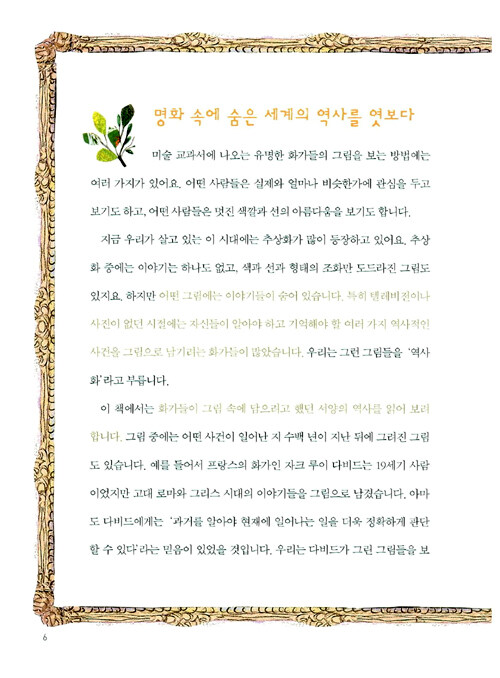 명화 속에 숨은 세계의 역사를 엿보다
미술 교과서에 나오는 유명한 화가들의 그림을 보는 방법에는
여러 가지가 있어요. 어떤 사람들은 실제와 얼마나 비슷한가에 관심을 두고
보기도 하고, 어떤 사람들은 멋진 색깔과 선의 아름다움을 보기도 합니다.
지금 우리가 살고 있는 이 시대에는 추상화가 많이 등장하고 있어요. 추상
화 중에는 이야기는 하나도 없고, 색과 선과 형태의 조화만 도드라진 그림도
있지요. 하지만 어떤 그림에는 이야기들이 숨어 있습니다. 특히 텔레비전이나
사진이 없던 시절에는 자신들이 알아야 하고 기억해야 할 여러 가지 역사적인
사건을 그림으로 남기려는 화가들이 많았습니다. 우리는 그런 그림들을 ‘역사
화’라고 부릅니다.
이 책에서는 화가들이 그림 속에 담으려고 했던 서양의 역사를 읽어 보려
합니다. 그림 중에는 어떤 사건이 일어난 지 수백 년이 지난 뒤에 그려진 그림
도 있습니다. 예를 들어서 프랑스의 화가인 자크 루이 다비드는 19세기 사람
이었지만 고대 로마와 그리스 시대의 이야기들을 그림으로 남겼습니다. 아마
도 다비드에게는 ‘과거를 알아야 현재에 일어나는 일을 더욱 정확하게 판단
할 수 있다’라는 믿음이 있었을 것입니다. 우리는 다비드가 그린 그림들을 보
6